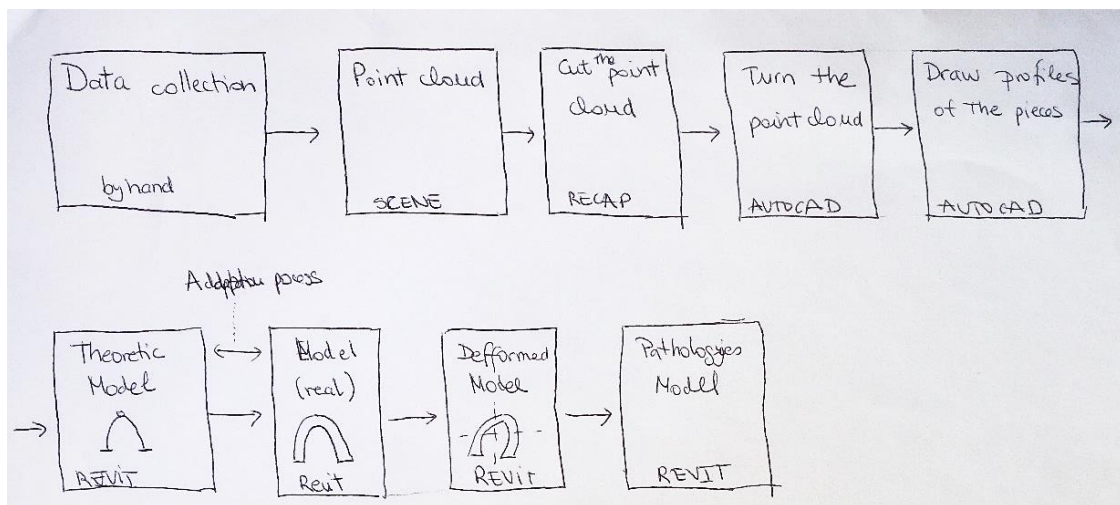 Data collection
by hand
Point cloud
SCENE
Cut the point
cloud
RECAP
Turn the
point cloud
AUTOCAD
Draw profiles
of the pieces
AUTOCAD
Theoretic
Model
REVIT
Model
(real)
Revit
Defformed
Model
REVIT
Pathologies
Model
REVIT